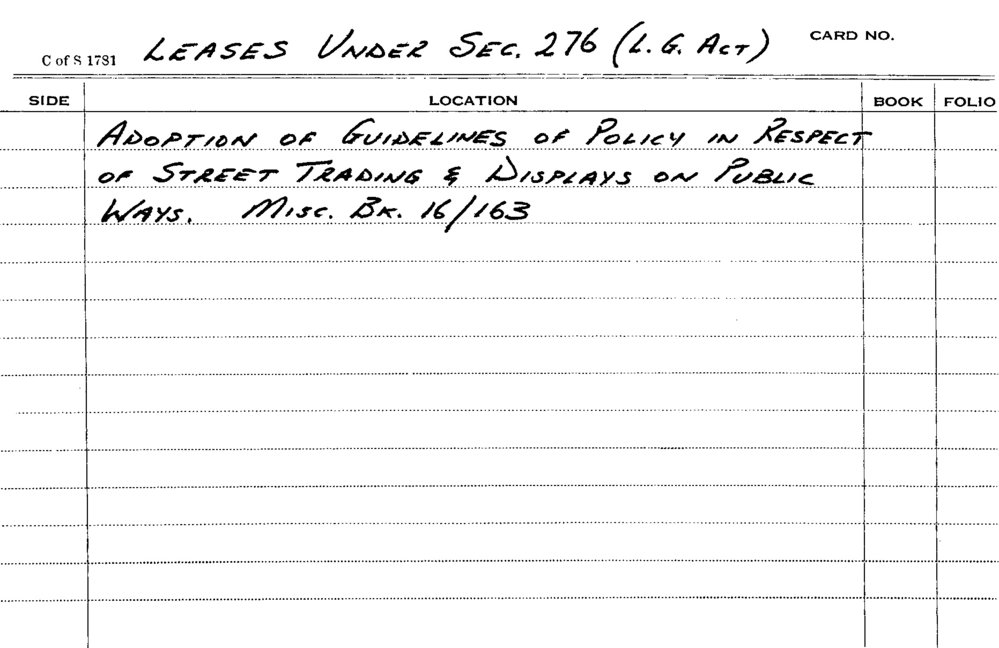 C of S 1781 LEASES UNDER SEC. 276 (L.G. ACT) CARD NO.
SIDE LOCATION BOOK FOLIO
ADOPTION OF GUIDELINES OF POLICY IN RESPECT
OF STREET TRADING & DISPLAYS ON PUBLIC
WAYS. MISC. BK. 16/163